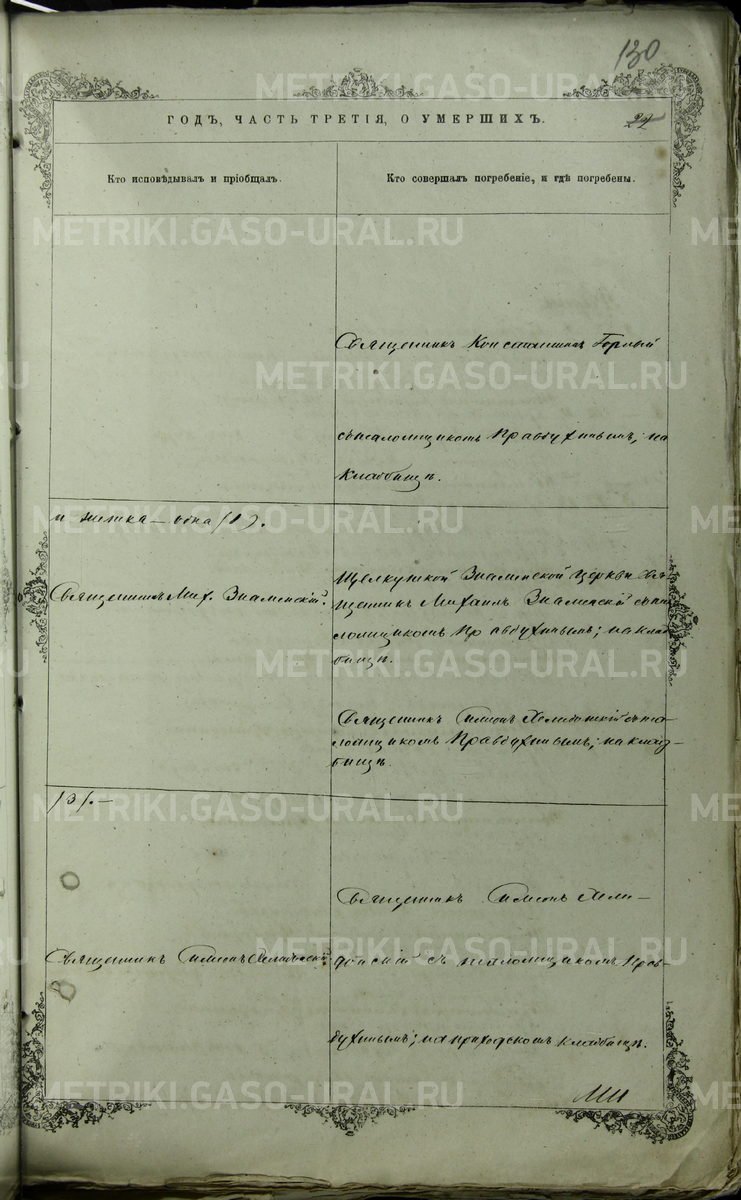 130
ГОДЪ, ЧАСТЬ ТРЕТІЯ, О УМЕРШИХЪ.
22
Кто исповѣдывалъ и пріобщалъ.
Кто совершалъ погребеніе, и гдѣ погребены.
Священникъ Константинъ Горный
съ псаломщикомъ Правдухинымъ; на
кладбищѣ.
и женска — одна (1).
Священникъ Мих. Знаменскій.
Щелкунской Знаменской церкви свя-
щенникъ Михаилъ Знаменскій съ пса-
ломщикомъ Правдухинымъ; на клад-
бищѣ.
Священникъ Симеонъ съ пса-
ломщикомъ Правдухинымъ; на клад-
бищѣ.
(3).—
Священникъ Симеонъ
Священникъ Симеонъ
съ псаломщикомъ Прав-
духинымъ; на приходскомъ кладбищѣ.
METRIKI.GASO-URAL.RU